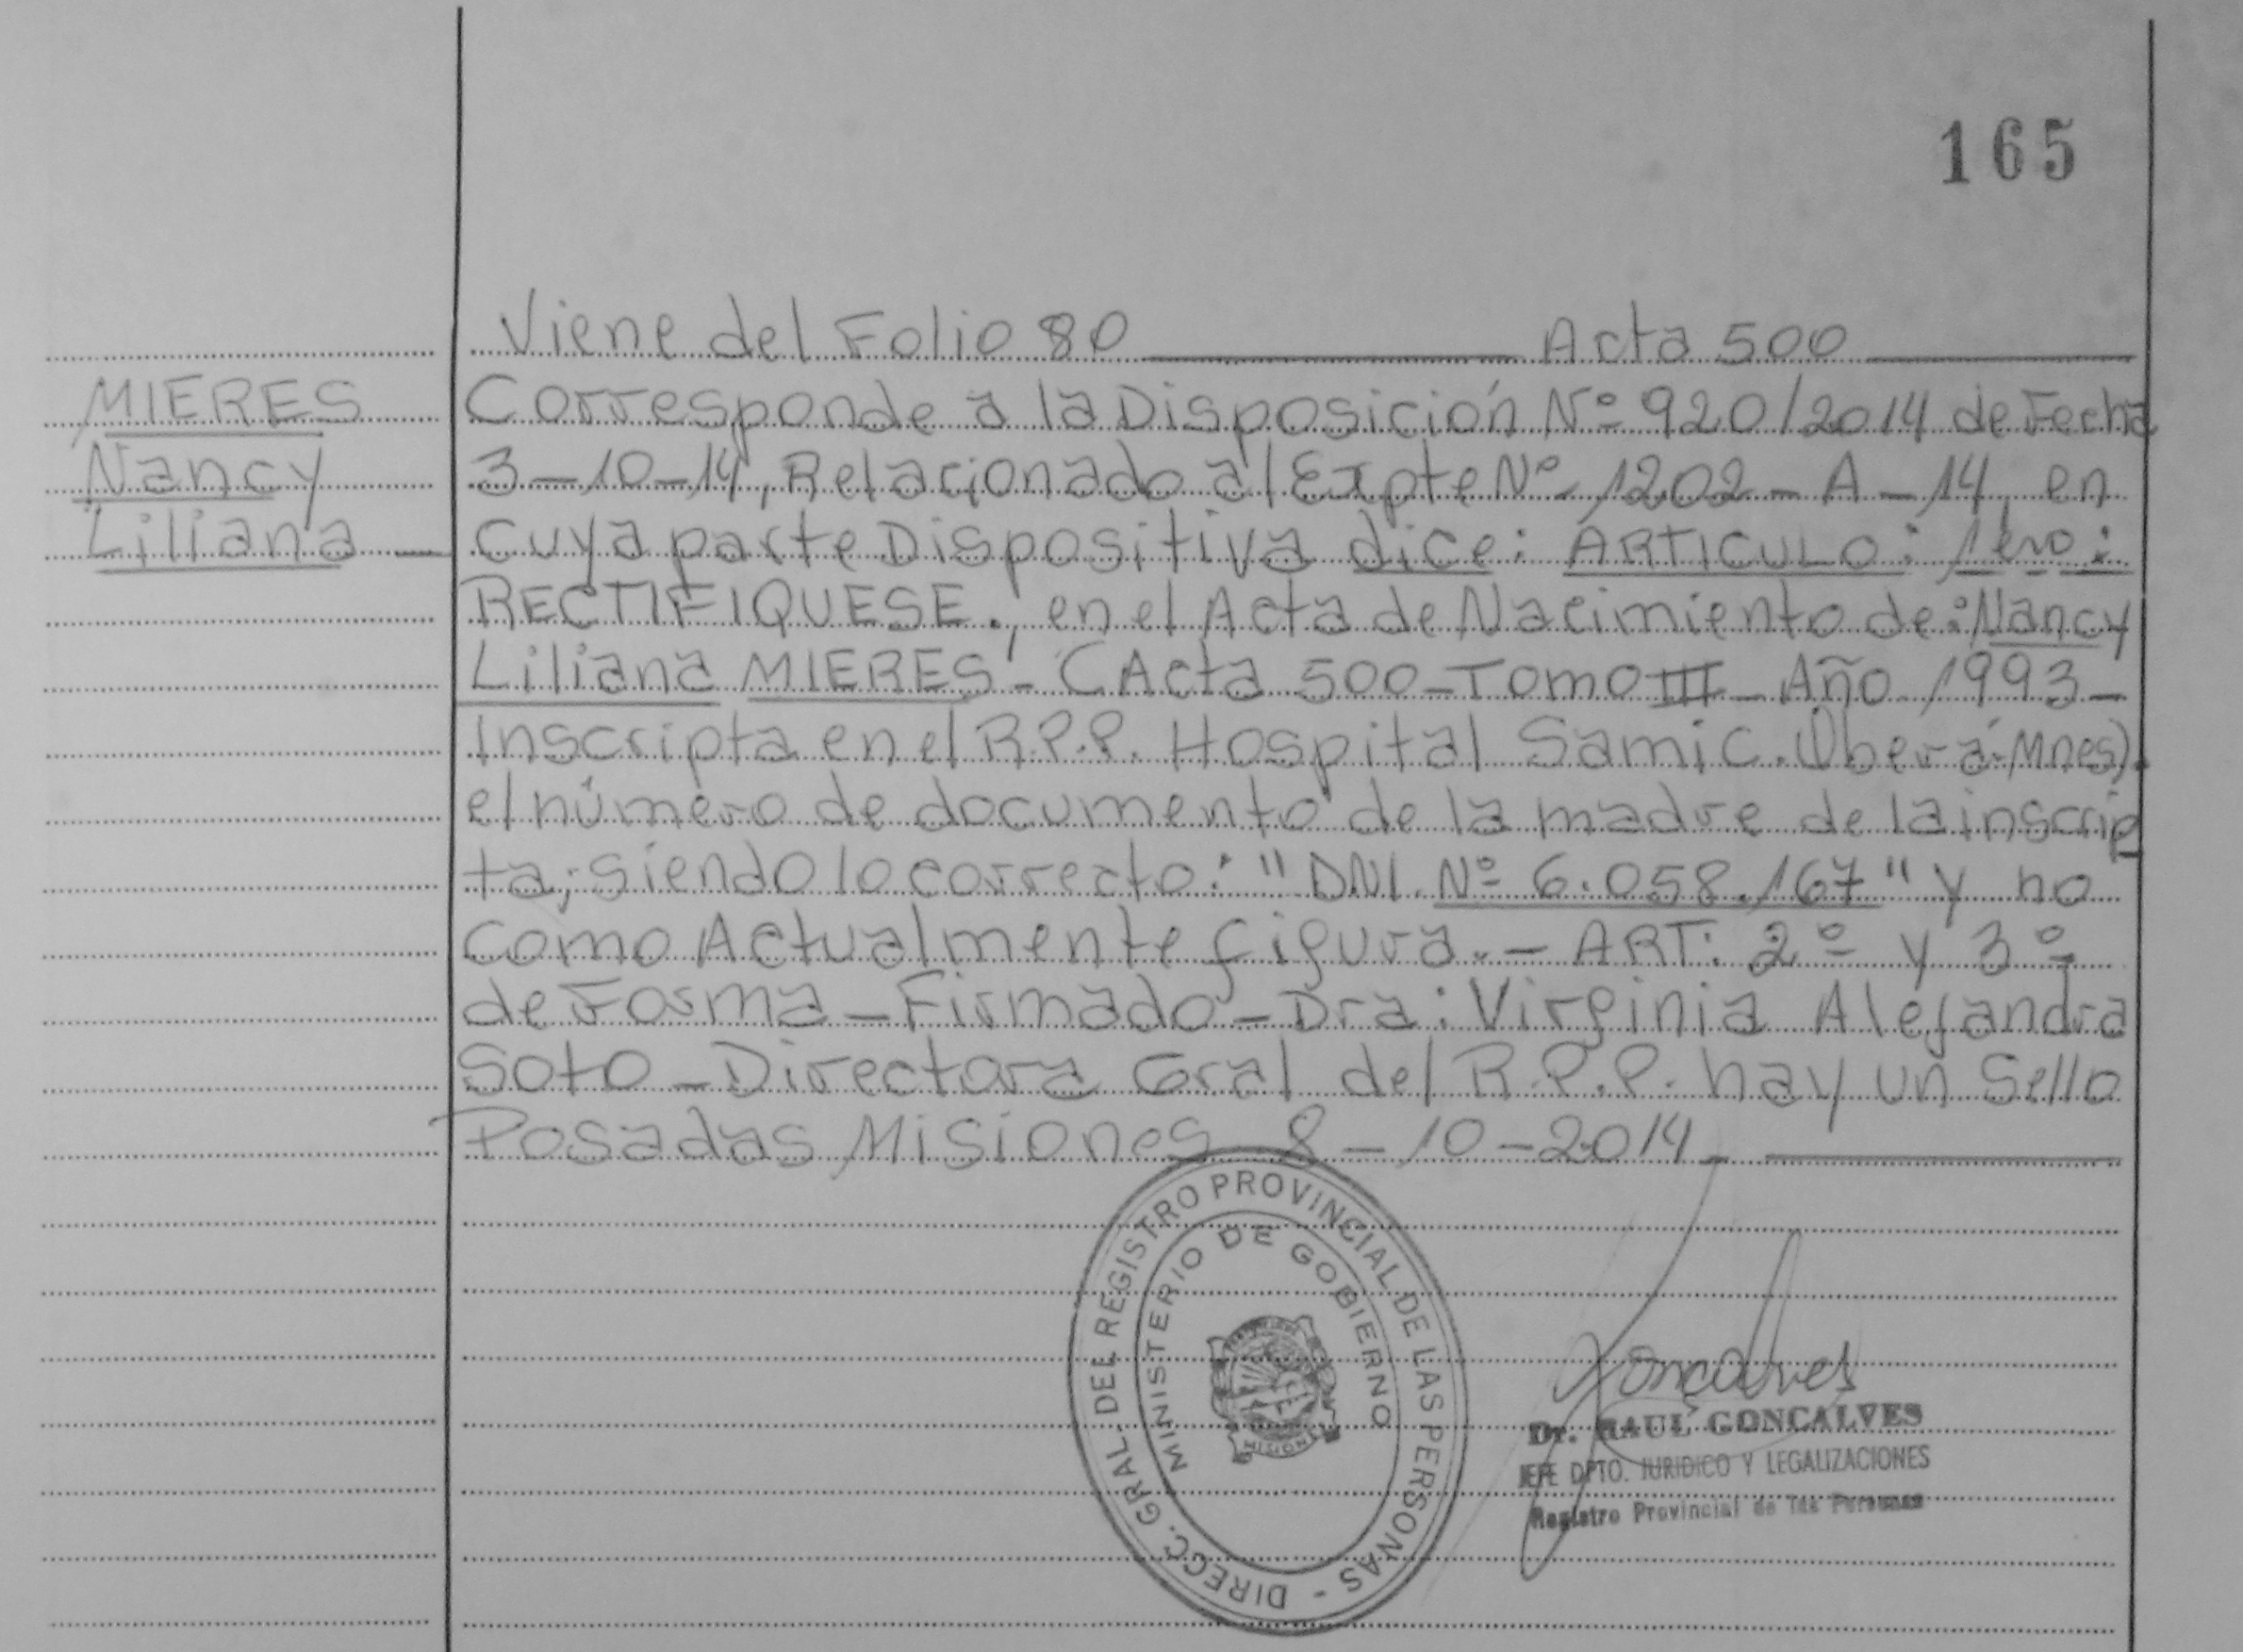 165
Viene del Folio 80 Acta 500
MIERES
Nancy
Liliana
Corresponde a la Disposición Nº 920/2014 de Fecha
3-10-14, Relacionado al Expte Nº 1202-A-14, en
cuya parte Dispositiva dice: ARTICULO: 1ero:
RECTIFIQUESE., en el Acta de Nacimiento de: Nancy
Liliana MIERES - (Acta 500 - Tomo III - Año 1993 -
Inscripta en el R.P.P. Hospital Samic. Oberá - Mnes).
el número de documento de la madre de la inscrip
ta, siendo lo correcto: "DNI. Nº 6.058.167" y no
como Actualmente figura.- ART: 2º y 3º
de Forma - Firmado - Dra: Virginia Alejandra
Soto - Directora Gral del R.P.P. hay un Sello
Posadas Misiones 8-10-2014-
DIRECC. GRAL. DEL REGISTRO PROVINCIAL DE LAS PERSONAS -
MINISTERIO DE GOBIERNO
MISIONES
Goncalves
Dr. RAUL GONCALVES
JEFE DPTO. JURIDICO Y LEGALIZACIONES
Registro Provincial de las Personas